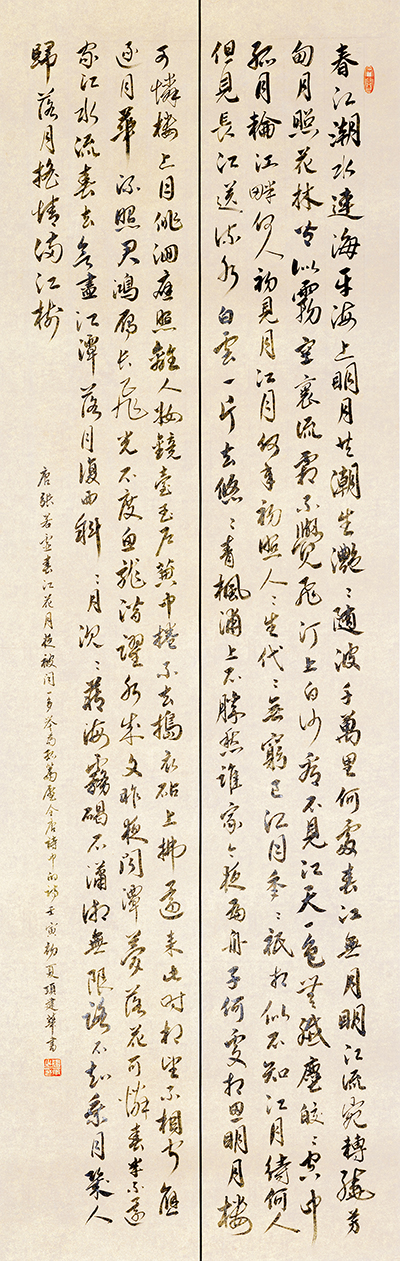 春江潮水連海平海上明月共潮生灧〻隨波千萬里何處春江無月明江流宛轉繞芳
甸月照花林似空裏流霜不覺飛汀上白沙看不見江天一色無纖塵皎〻空中
孤月輪江畔何人初見月江月何年初照人〻生代〻無窮已江月年〻祇相似不知江月待何人
但見長江送流水白雲一片去悠〻青楓浦上不勝愁誰家今夜扁舟子何處相思明月樓
可憐樓上月徘徊應照離人妝鏡臺玉戶簾中捲不去搗衣砧上拂還來此時相望不相聞
逐月華流照君鴻雁長飛光不度魚龍潛躍水成文昨夜閑潭夢落花可憐春半不還
家江水流春去盡江潭落月復西斜〻月沉〻藏海霧碣石瀟湘無限路不知乘月幾人
歸落月搖情滿江樹
唐張若虛春江花月夜被聞一多譽為孤篇壓全唐詩中的詩壬寅初夏項建華書